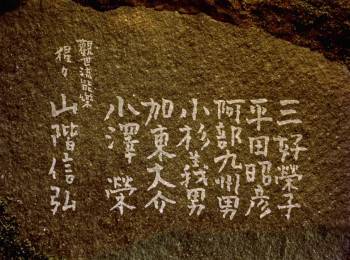 三好榮子
平田昭彦
阿部九州男
小杉義男
加東大介
小澤榮
觀世流能樂
猩々 山階信弘